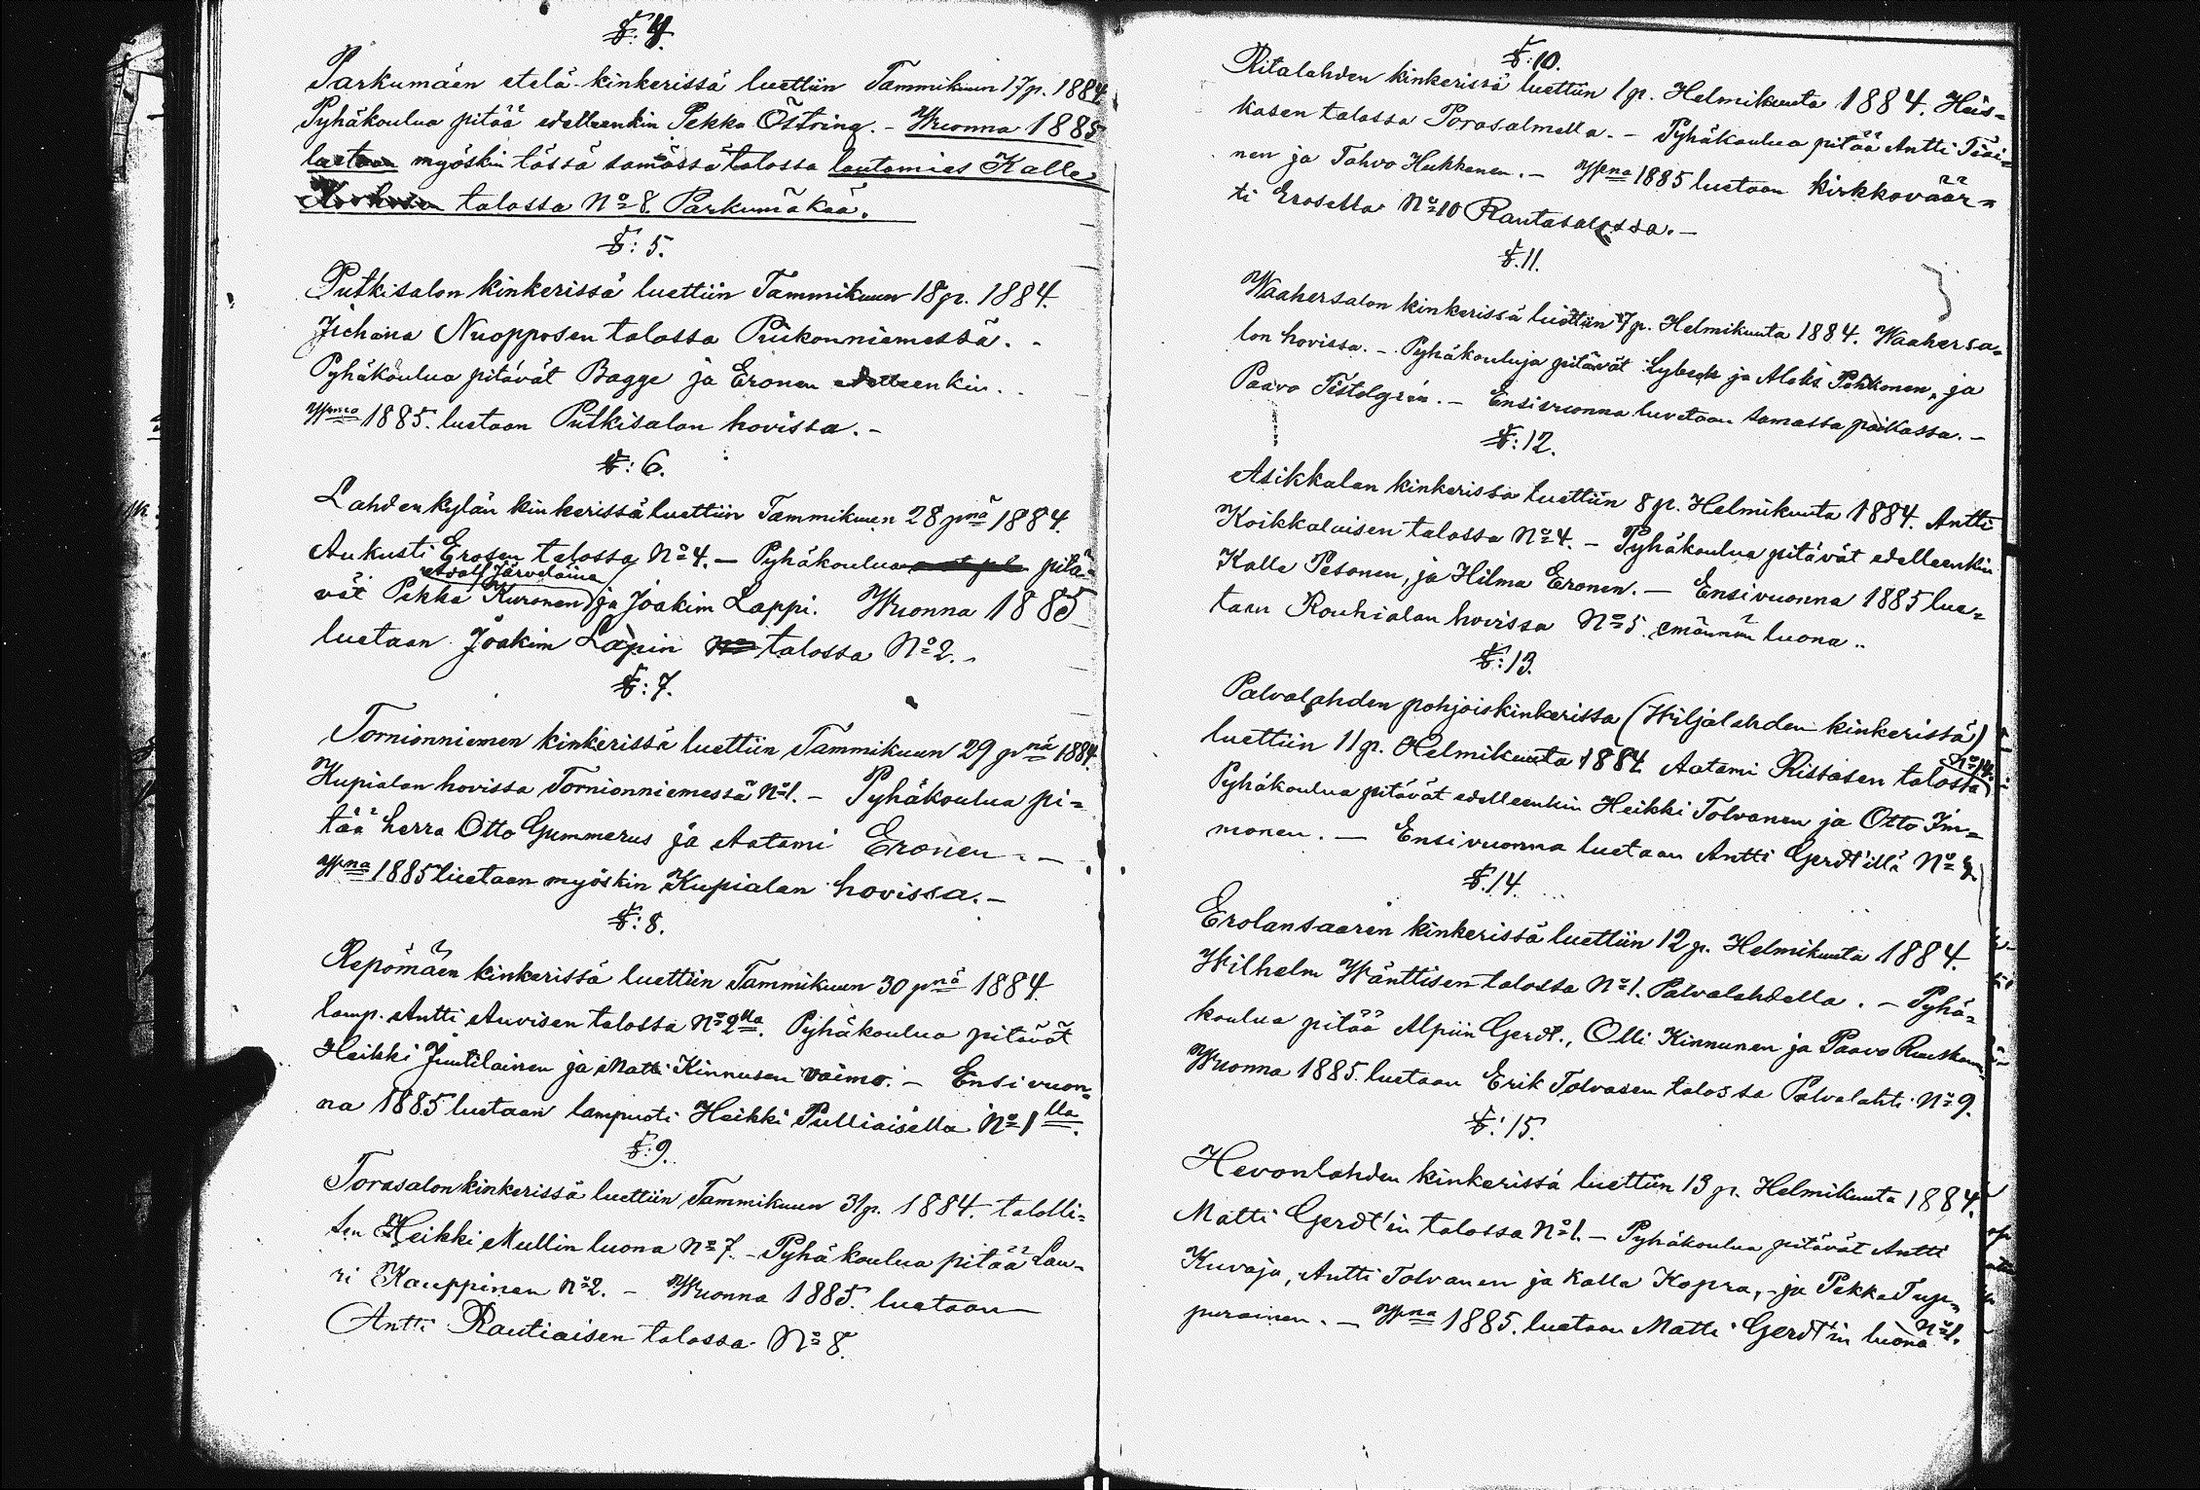 §: 4.
Parkumäen etelä kinkerissä luettiin Tammikuun 17 p. 1884
Pyhäkoulua pitää edelleenkin Pekka Östring. – Wuonna 1885
luetaan myöskin tässä samassa talossa lautamies Kalle
talossa No 8. Parkumäkeä.
§: 5.
Putkisalon kinkerissä luettiin Tammikuun 18 p. 1884.
Juhana Nuopposen talossa Pieikonniemessä. -
Pyhäkoulua pitävät Bagge ja Eronen edelleenkin.
Wna 1885. luetaan Putkisalon hovissa. -
§: 6.
Lahdenkylän kinkerissä luettiin Tammikuun 28 pnä 1884.
Aukusti Erosen talossa No 4. – Pyhäkoulua pitä-
Adolf Järveläinen
vät Pekka Kuronen ja Joakim Lappi. Wuonna 1885
luetaan Joakim Lapin talossa No 2. -
§: 7.
Tornionniemen kinkerissä luettiin Tammikuun 29 pnä 1884.
Kupialan hovissa Tornionniemessä No 1. – Pyhäkoulua pi=
tää herra Otto Gummerus ja Aatami Eronen. –
Wna 1885 luetaan myöskin Kupialan hovissa. –
§: 8.
Repomäen kinkerissä luettiin Tammikuun 30 pnä 1884
lamp. Antti Auvisen talossa No 2lla. Pyhäkoulua pitävät
Heikki Juutilainen ja Matti Kinnusen vaimo. – Ensi vuon=
na 1885 luetaan lampuoti Heikki Pulliaisella No 1lla.
§: 9.
Torasalon kinkerissä luettiin Tammikuun 31 p. 1884. talolli=
sen Heikki Mullin luona No 7. – Pyhäkoulua pitää Lau-
ri Kauppinen No 2. – Wuonna 1885. luetaan
Antti Rautiaisen talossa No 8.
§: 10.
Ritalahden kinkerissä luettiin 1 p. Helmikuuta 1884. Heis=
kasen talossa Porosalmella. – Pyhäkoulua pitää Antti
nen ja Tahvo Hukkanen. – Wna 1885 luetaan kirkkoväär=
ti Erosella No 10 Rantasalossa. –
§. 11.
Waahersalon kinkerissä luettiin 7 p. Helmikuuta 1884. Waahersa=
lon hovissa. – Pyhäkouluja pitävät Lybeck ja Aleks Pöhkonen, ja
Paavo Tistelgrén. – Ensivuonna luvetaan samassa paikassa. –
§: 12.
Asikkalan kinkerissa luettiin 8 p. Helmikuuta 1884. Antti
Koikkalaisen talossa No 4. – Pyhäkoulua pitävät edelleenkin
Kalle Pesonen, ja Hilma Eronen. – Ensivuonna 1885 lue=
taan Rouhialan hovissa No 5. emännän luona.
§: 13.
Palvalahden pohjoiskinkerissa (Wiljalahden kinkerissä)
luettiin 11 p. Helmikuuta 1884 Aatami Rissasen talossa No 14.
Pyhäkoulua pitävät edelleenkin Heikki Tolvanen ja Otto Im=
monen. – Ensivuonna luetaan Antti Gerdt'illä No
§. 14.
Erolansaaren kinkerissä luettiin 12 p. Helmikuuta 1884.
Wilhelm Wänttisen talossa No 1. Palvalahdella. – Pyhä=
koulua pitää Alpiin Gerdt., Olli Kinnunen ja Paavo
Wuonna 1885. luetaan Erik Tolvasen talossa Palvalahti No 9.
§: 15.
Hevonlahden kinkerissä luettiin 13 p. Helmikuuta 1884.
Matti Gerdt'in talossa No 1. – Pyhäkoulua pitävät Antti
Kuvaja, Antti Tolvanen ja Kalle Kopra, – ja Pekka Tup=
purainen. – Wna 1885. luetaan Matti Gerdt'in luona No 1.